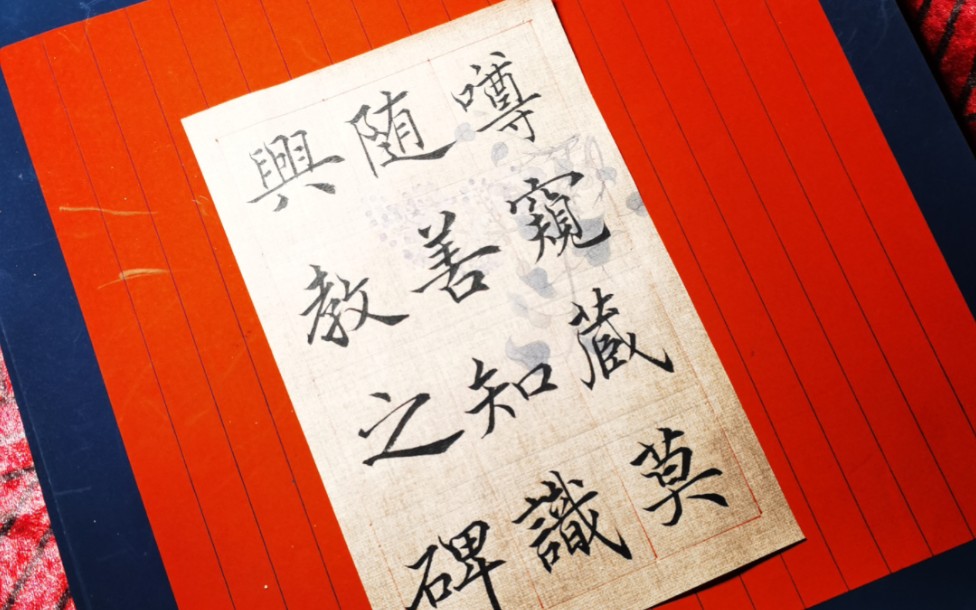 噂窺蔵莫
随善知識
興教之碑